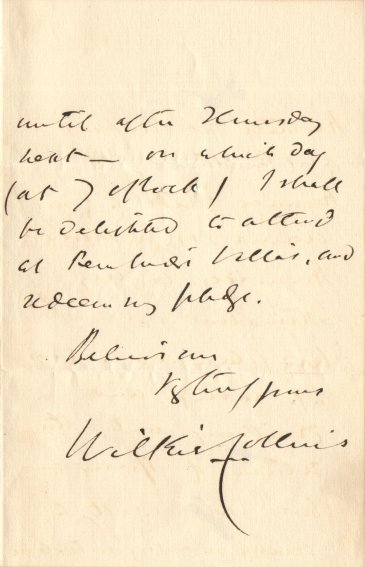 until after Thursday
next — on which day
(at 7 o'clock) I shall
be delighted to attend
at Pembridge Villas, and
redeem my pledge.
Believe me
Vy truly yours
Wilkie Collins